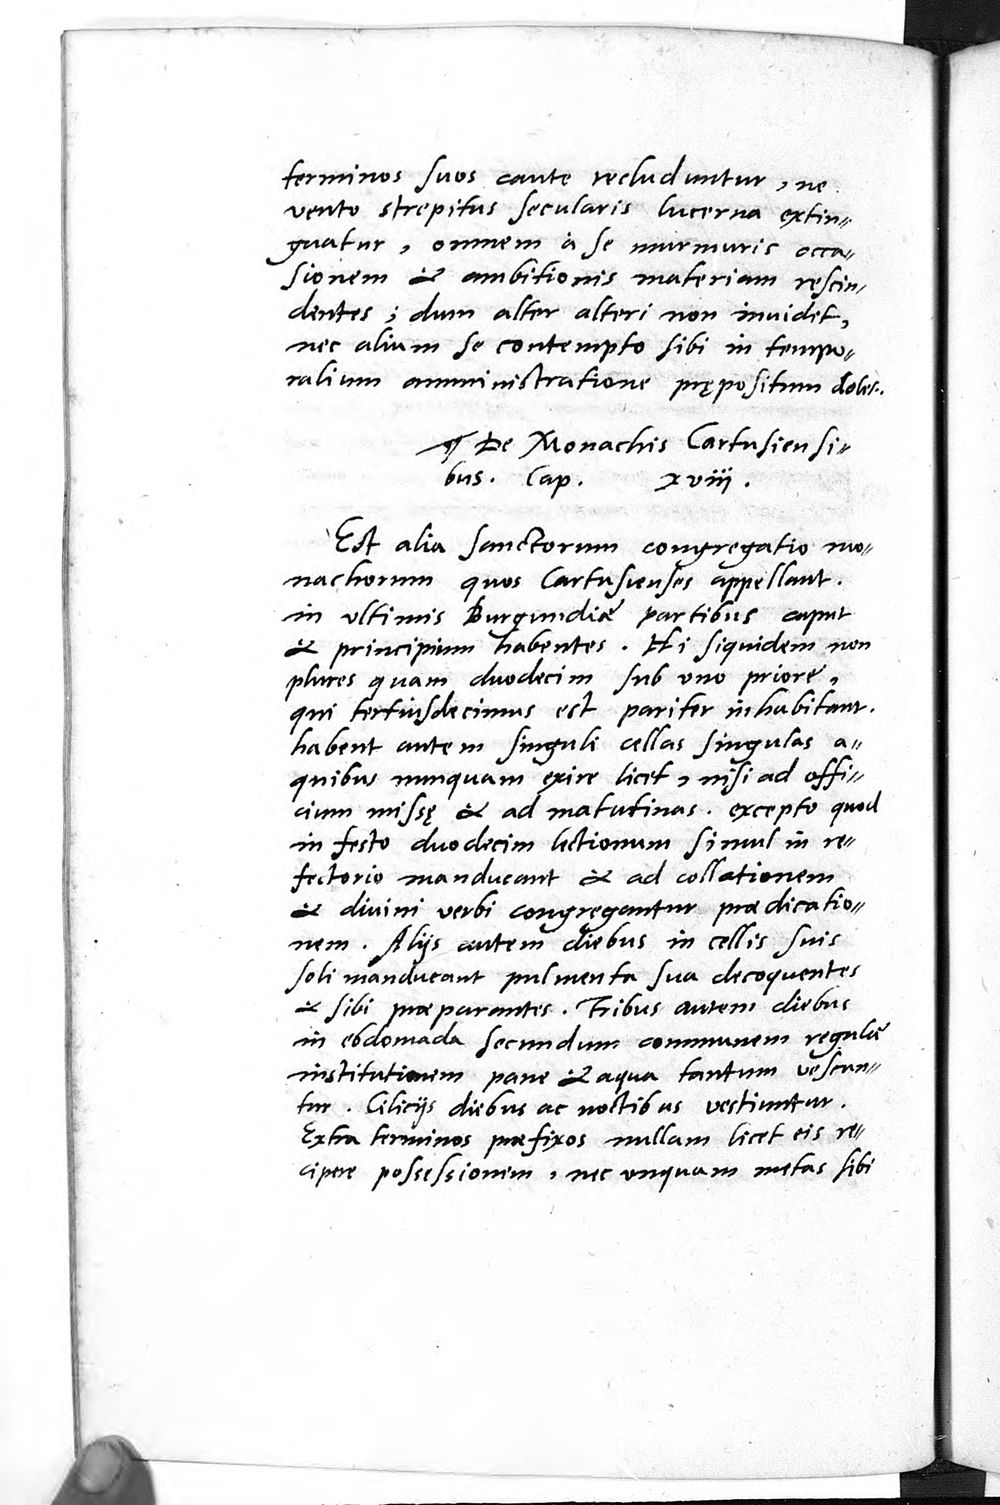 terminos suos caute recluduntur, ne
vento strepitus secularis lucerna extin=
guatur, omnem à se murmuris occa=
sionem & ambitionis materiam rescin=
dentes; dum alter alteri non inuidet,
nec alium se contempto sibi in tempo=
ralium amministratione prępositum dolet.
¶ De Monachis Cartusiensi=
bus. Cap. xviij.
Est alia sanctorum congregatio mo=
nachorum quos Cartusienses appellant.
in vltimis Burgundiæ partibus caput
& principium habentes. Hi siquidem non
plures quam duodecim sub vno priore,
qui tertiusdecimus est pariter inhabitant.
habent autem singuli cellas singulas a=
quibus nunquam exire licet, nisi ad offi=
cium missę & ad matutinas. excepto quod
in festo duodecim lectionum simul in re=
fectorio manducant & ad collationem
& diuini verbi congregantur prædicatio=
nem. Alijs autem diebus in cellis suis
soli manducant pulmenta sua decoquentes
& sibi præparantes. Tribus autem diebus
in ebdomada secundum communem regulæ
institutionem pane & aqua tantum vescun=
tur. Cilicijs diebus ac noctibus vestiuntur.
Extra terminos præfixos nullam licet eis re=
cipere possessionem, nec vnquam metas sibi